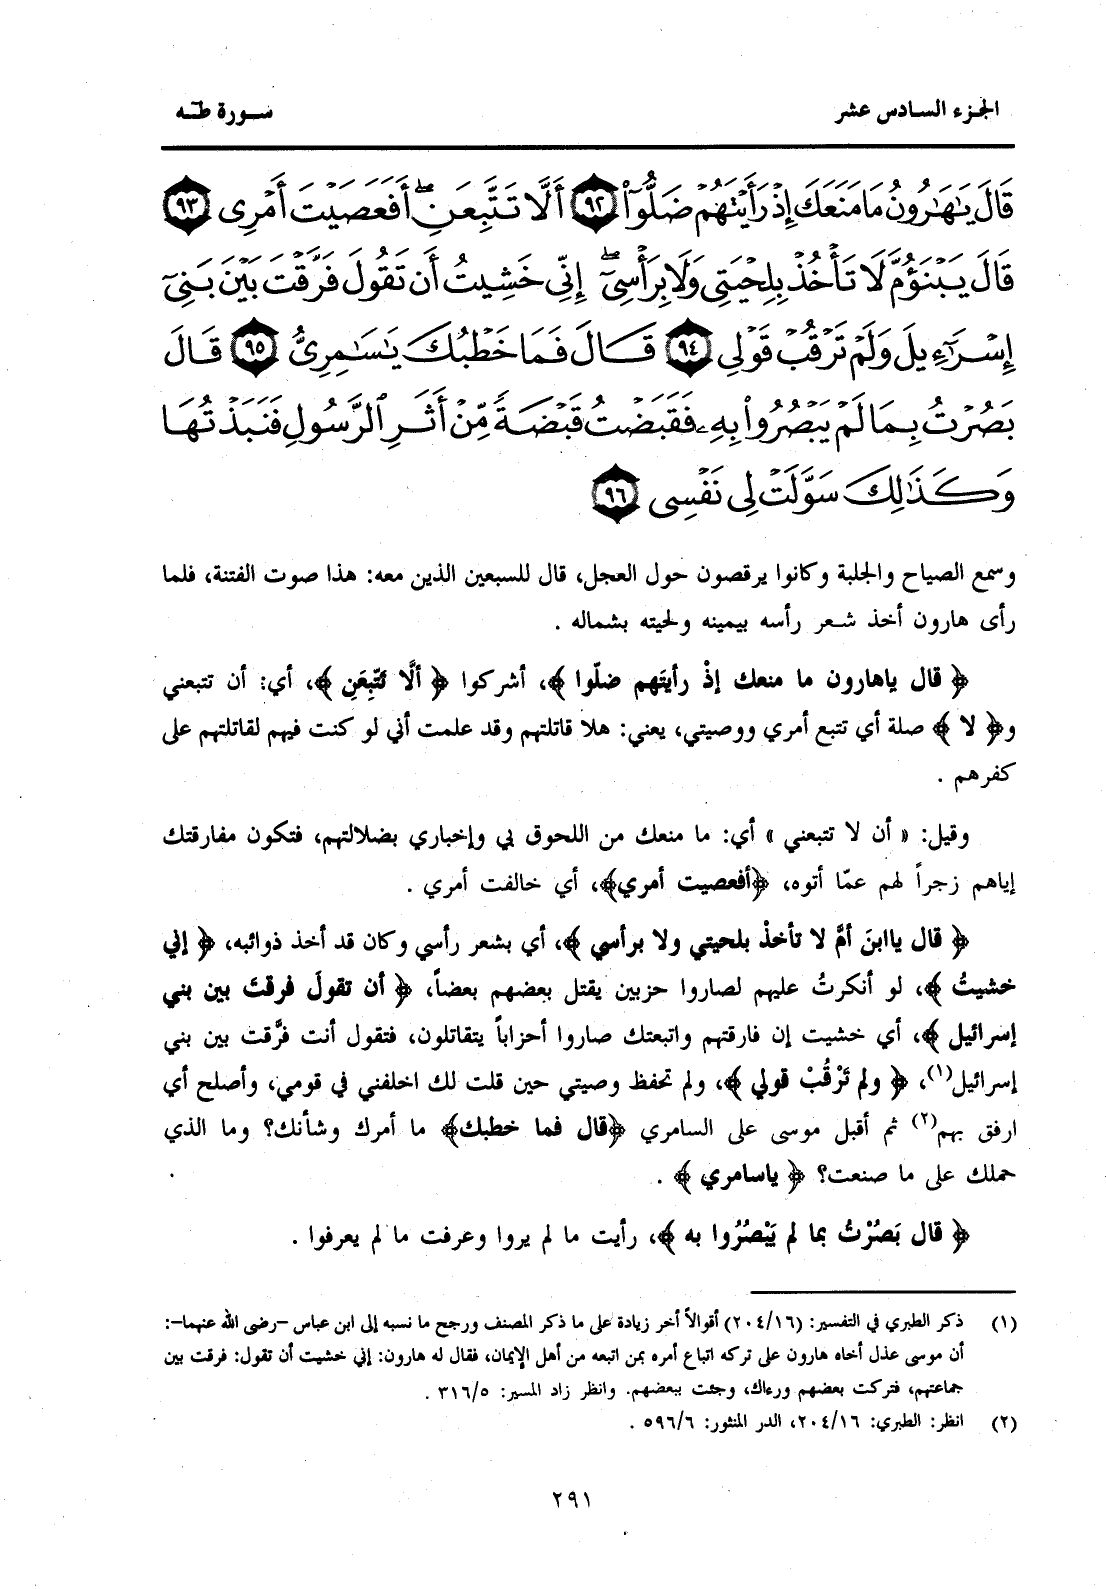 الجزء السادس عشر
سورة طه
قَالَ يَٰهَٰرُونُ مَا مَنَعَكَ إِذْ رَأَيْتَهُمْ ضَلُّوٓا۟ ٩٢ أَلَّا تَتَّبِعَنِ ۖ أَفَعَصَيْتَ أَمْرِى ٩٣
قَالَ يَبْنَؤُمَّ لَا تَأْخُذْ بِلِحْيَتِى وَلَا بِرَأْسِىٓ ۖ إِنِّى خَشِيتُ أَن تَقُولَ فَرَّقْتَ بَيْنَ بَنِىٓ
إِسْرَٰٓءِيلَ وَلَمْ تَرْقُبْ قَوْلِى ٩٤ قَالَ فَمَا خَطْبُكَ يَٰسَٰمِرِىُّ ٩٥ قَالَ
بَصُرْتُ بِمَا لَمْ يَبْصُرُوا۟ بِهِۦ فَقَبَضْتُ قَبْضَةً مِّنْ أَثَرِ ٱلرَّسُولِ فَنَبَذْتُهَا
وَكَذَٰلِكَ سَوَّلَتْ لِى نَفْسِى ٩٦
وسمع الصياح والجلبة وكانوا يرقصون حول العجل، قال للسبعين الذين معه: هذا صوت الفتنة، فلما
رأى هارون أخذ شعر رأسه بيمينه ولحيته بشماله .
﴿ قال ياهارون ما منعك إذْ رأيتَهم ضلّوا ﴾، أشركوا ﴿ ألَّا تتّبِعَنِ ﴾، أي: أن تتبعني
و﴿ لا ﴾ صلة أي تتبع أمري ووصيتي، يعني: هلا قاتلتهم وقد علمت أني لو كنت فيهم لقاتلتهم على
كفرهم .
وقيل: « أن لا تتبعني » أي: ما منعك من اللحوق بي وإخباري بضلالتهم، فتكون مفارقتك
إياهم زجراً لهم عمّا أتوه، ﴿أفعصيت أمري﴾، أي خالفت أمري .
﴿ قال ياابنَ أمَّ لا تأخذْ بلحيتي ولا برأسي ﴾، أي بشعر رأسي وكان قد أخذ ذوائبه، ﴿ إني
خشيتُ ﴾، لو أنكرتُ عليهم لصاروا حزبين يقتل بعضهم بعضاً، ﴿ أن تقولَ فرقتَ بين بني
إسرائيل ﴾، أي خشيت إن فارقتهم واتبعتك صاروا أحزاباً يتقاتلون، فتقول أنت فرَّقت بين بني
إسرائيل(١)، ﴿ ولم تَرْقُبْ قولي ﴾، ولم تحفظ وصيتي حين قلت لك اخلفني في قومي، وأصلح أي
ارفق بهم(٢) ثم أقبل موسى على السامري ﴿قال فما خطبك﴾ ما أمرك وشأنك؟ وما الذي
حملك على ما صنعت؟ ﴿ ياسامري ﴾ .
﴿ قال بَصُرْتُ بما لم يَبْصُرُوا به ﴾، رأيت ما لم يروا وعرفت ما لم يعرفوا .
(١) ذكر الطبري في التفسير: (٢٠٤/١٦) أقوالاً أخر زيادة على ما ذكر المصنف ورجح ما نسبه إلى ابن عباس -رضى الله عنهما-:
أن موسى عذل أخاه هارون على تركه اتباع أمره بمن اتبعه من أهل الإيمان، فقال له هارون: إني خشيت أن تقول: فرقت بين
جماعتهم، فتركت بعضهم وراءك، وجئت ببعضهم. وانظر زاد المسير: ٣١٦/٥ .
(٢) انظر: الطبري: ٢٠٤/١٦، الدر المنثور: ٥٩٦/٦ .
٢٩١